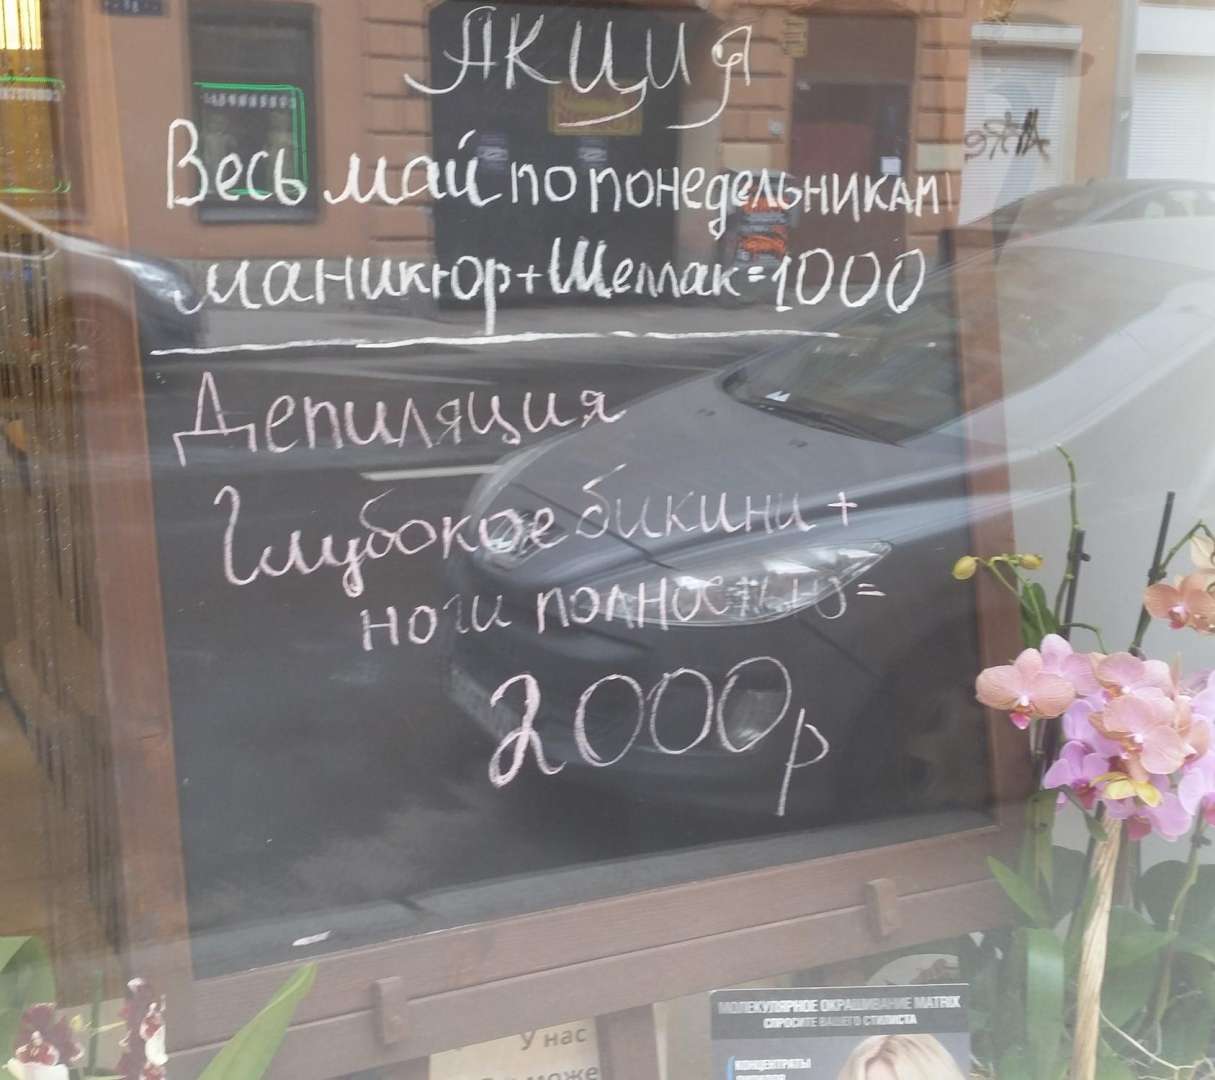 Акция
Весь май по понедельникам
маникюр+Шеллак=1000
Депиляция
Глубокое бикини +
ноги полностью=
2000р
МОЛЕКУЛЯРНОЕ ОКРАШИВАНИЕ MATRIX
СПРОСИТЕ ВАШЕГО СТИЛИСТА
КОНЦЕНТРАТЫ
У нас
може